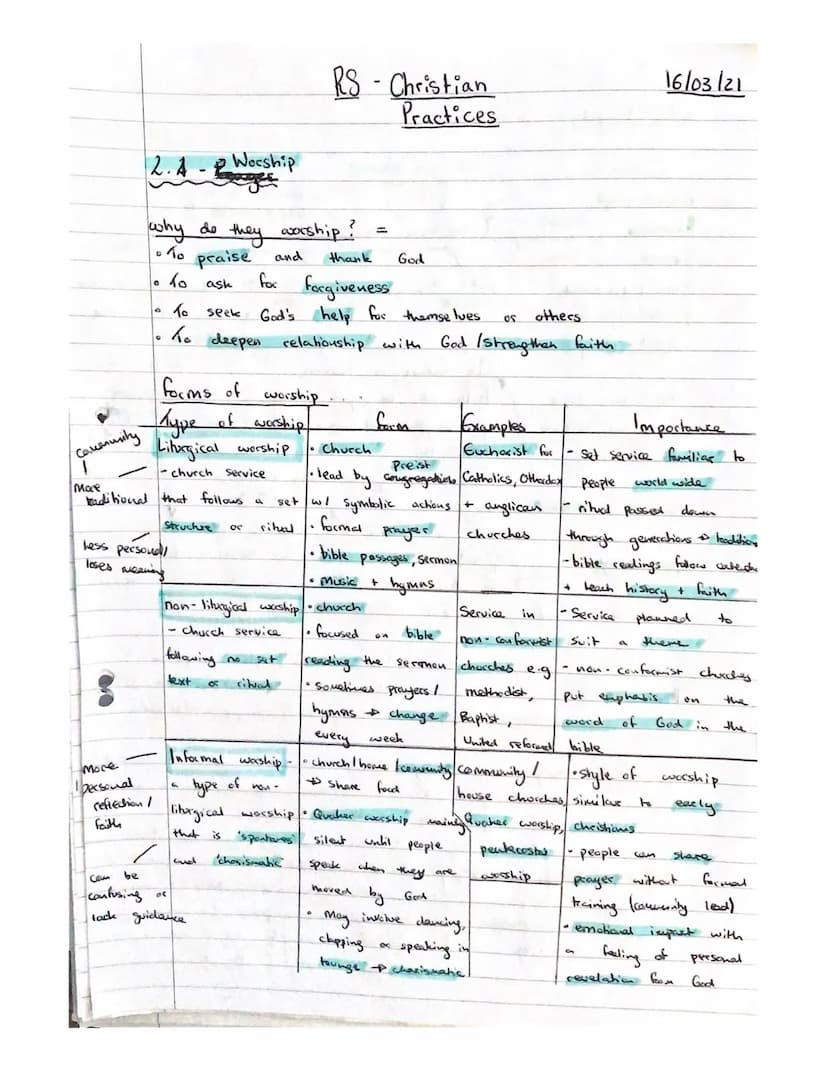 RS - Christian
Practices
16/03/21
2.1 - Worship
why do they worship? =
• To praise and thank God
• To ask for forgiveness
• To seek God's help for themselves or others
• To deepen relationship with God / strengthen faith
forms of worship ...
Type of worship
form
Examples
Importance
community
more
traditional
Less personal /
loses meaning
Liturgical worship
- church service
that follows a set
structure or ritual
• Church
• lead by congregation
Preist
w/ symbolic actions
• formal prayer
• bible passages, sermon
• Music + hymns
Eucharist for
Catholics, Othordox
+ anglican
churches
- set service familiar to
people world wide
- ritual passed down
through generations → tradition
- bible readings follow
+ teach history + faith
non-liturgical worship
- church service
following no set
text or ritual
• church
• focused on bible
reading the seromon
• sometimes prayers /
hymns → change
every week
Service in
non-conformist
churches e.g
methodist,
Baptist,
United reformed
- Service planned to
suit a theme
- non-conformist churches
put emphasis on the
word of God in the
bible
more
personal
reflection /
faith
can be
confusing or
lack guidance
Informal worship -
a type of non-
liturgical worship
that is
and 'charismatic
• church / home / community
→ share food
• Quaker worship mainly
silent until people
speak when they are
moved by God
• May involve dancing,
clapping or speaking in
tounge → charismatic
community /
house churches,
Quaker worship,
worship
• style of worship
similar to early
christians
- people can share
prayer without formal
training (community lead)
• emotional impact with
a feeling of personal
revelation from God